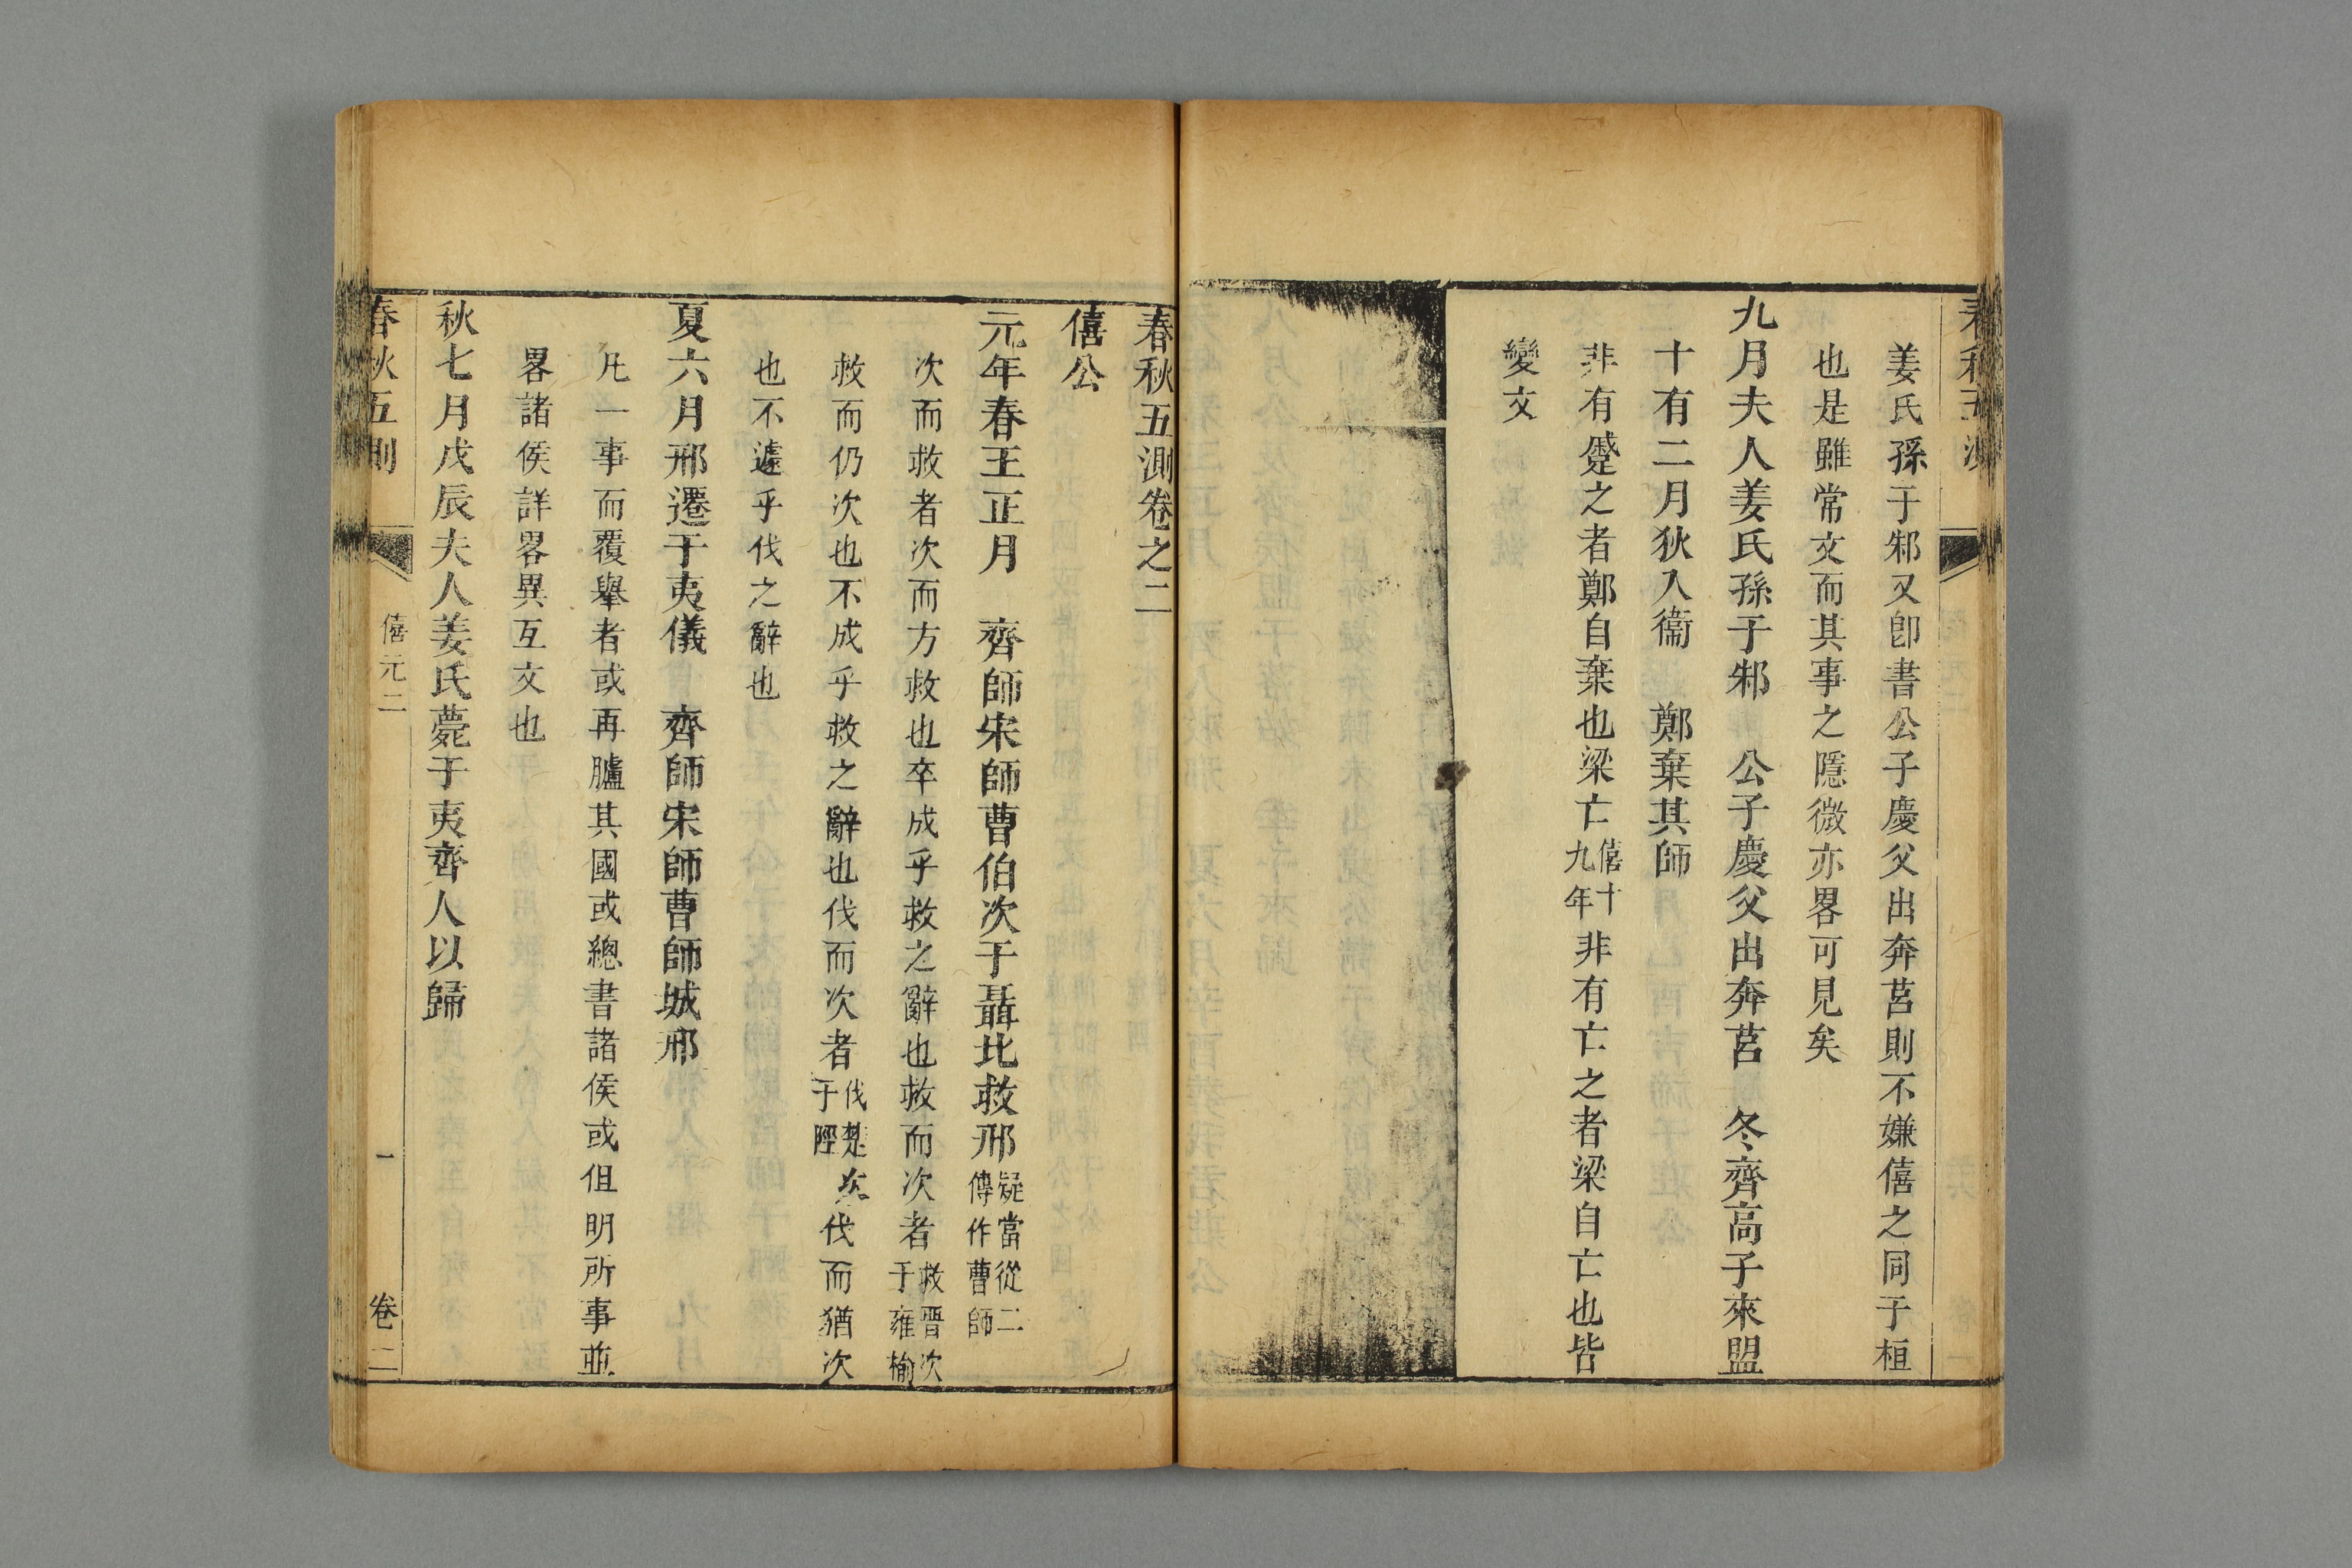 春秋五測
姜氏孫于邾又卽書公子慶父出奔莒則不嫌僖之同于桓
也是雖常文而其事之隱微亦畧可見矣
九月夫人姜氏孫于邾　公子慶父出奔莒　冬齊高子來盟
十有二月狄入衞　鄭棄其師
非有蹙之者鄭自棄也梁亡僖十九年非有亡之者梁自亡也皆
變文
春秋五測卷之二
僖公
元年春王正月　齊師宋師曹伯次于聶北救邢疑當從二傳作曹師
次而救者次而方救也卒成乎救之辭也救而次者救晉次于雍榆
救而仍次也不成乎救之辭也伐而次者伐楚次于陘伐而猶次
也不遽乎伐之辭也
夏六月邢遷于夷儀　齊師宋師曹師城邢
凡一事而覆舉者或再臚其國或總書諸侯或但明所事並
畧諸侯詳畧異互文也
秋七月戊辰夫人姜氏薨于夷齊人以歸
春秋五測　僖元二　一　卷二